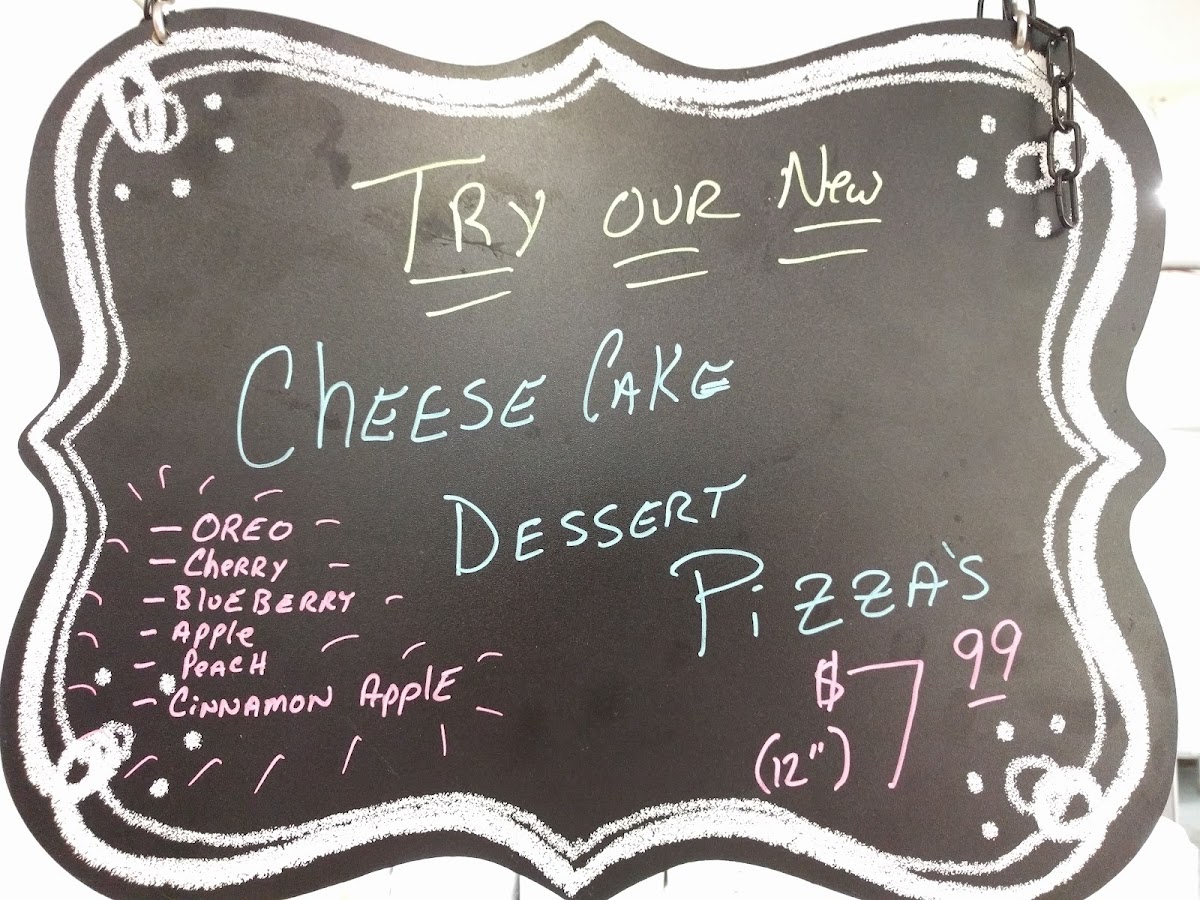 TRY OUR New
CHEESE CAKE
DESSERT
PiZZA'S
- OREO -
- CheRRY -
- BlUEBERRY -
- Apple
- PEACH
- CiNNAMON ApplE
$7 99
(12")